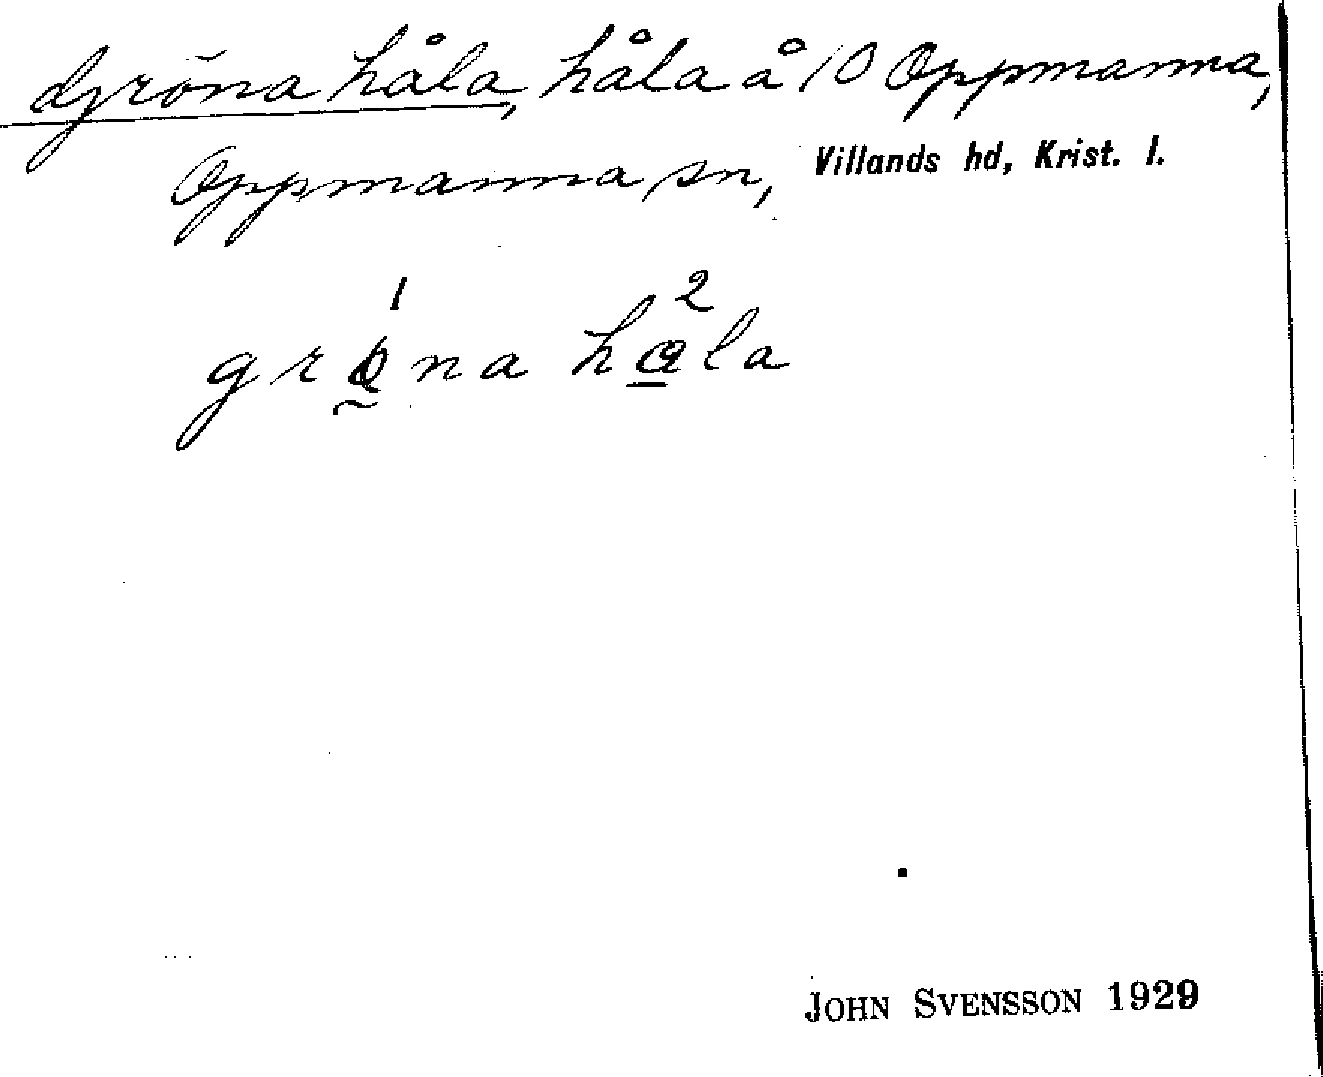 Gröna håla, håla å 10 Oppmanna,
Oppmanna sn, Villands hd, Krist. l.
1 2
gröna hala
JOHN SVENSSON 1929